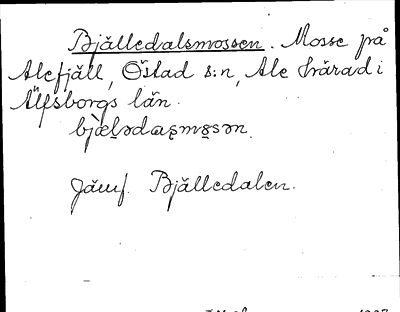 Bjälledalsmossen. Mosse på
Alefjäll, Östad s:n, Ale härad i
Älfsborgs län.
bjæḷədaʂmosən.
Jämf. Bjälledalen.